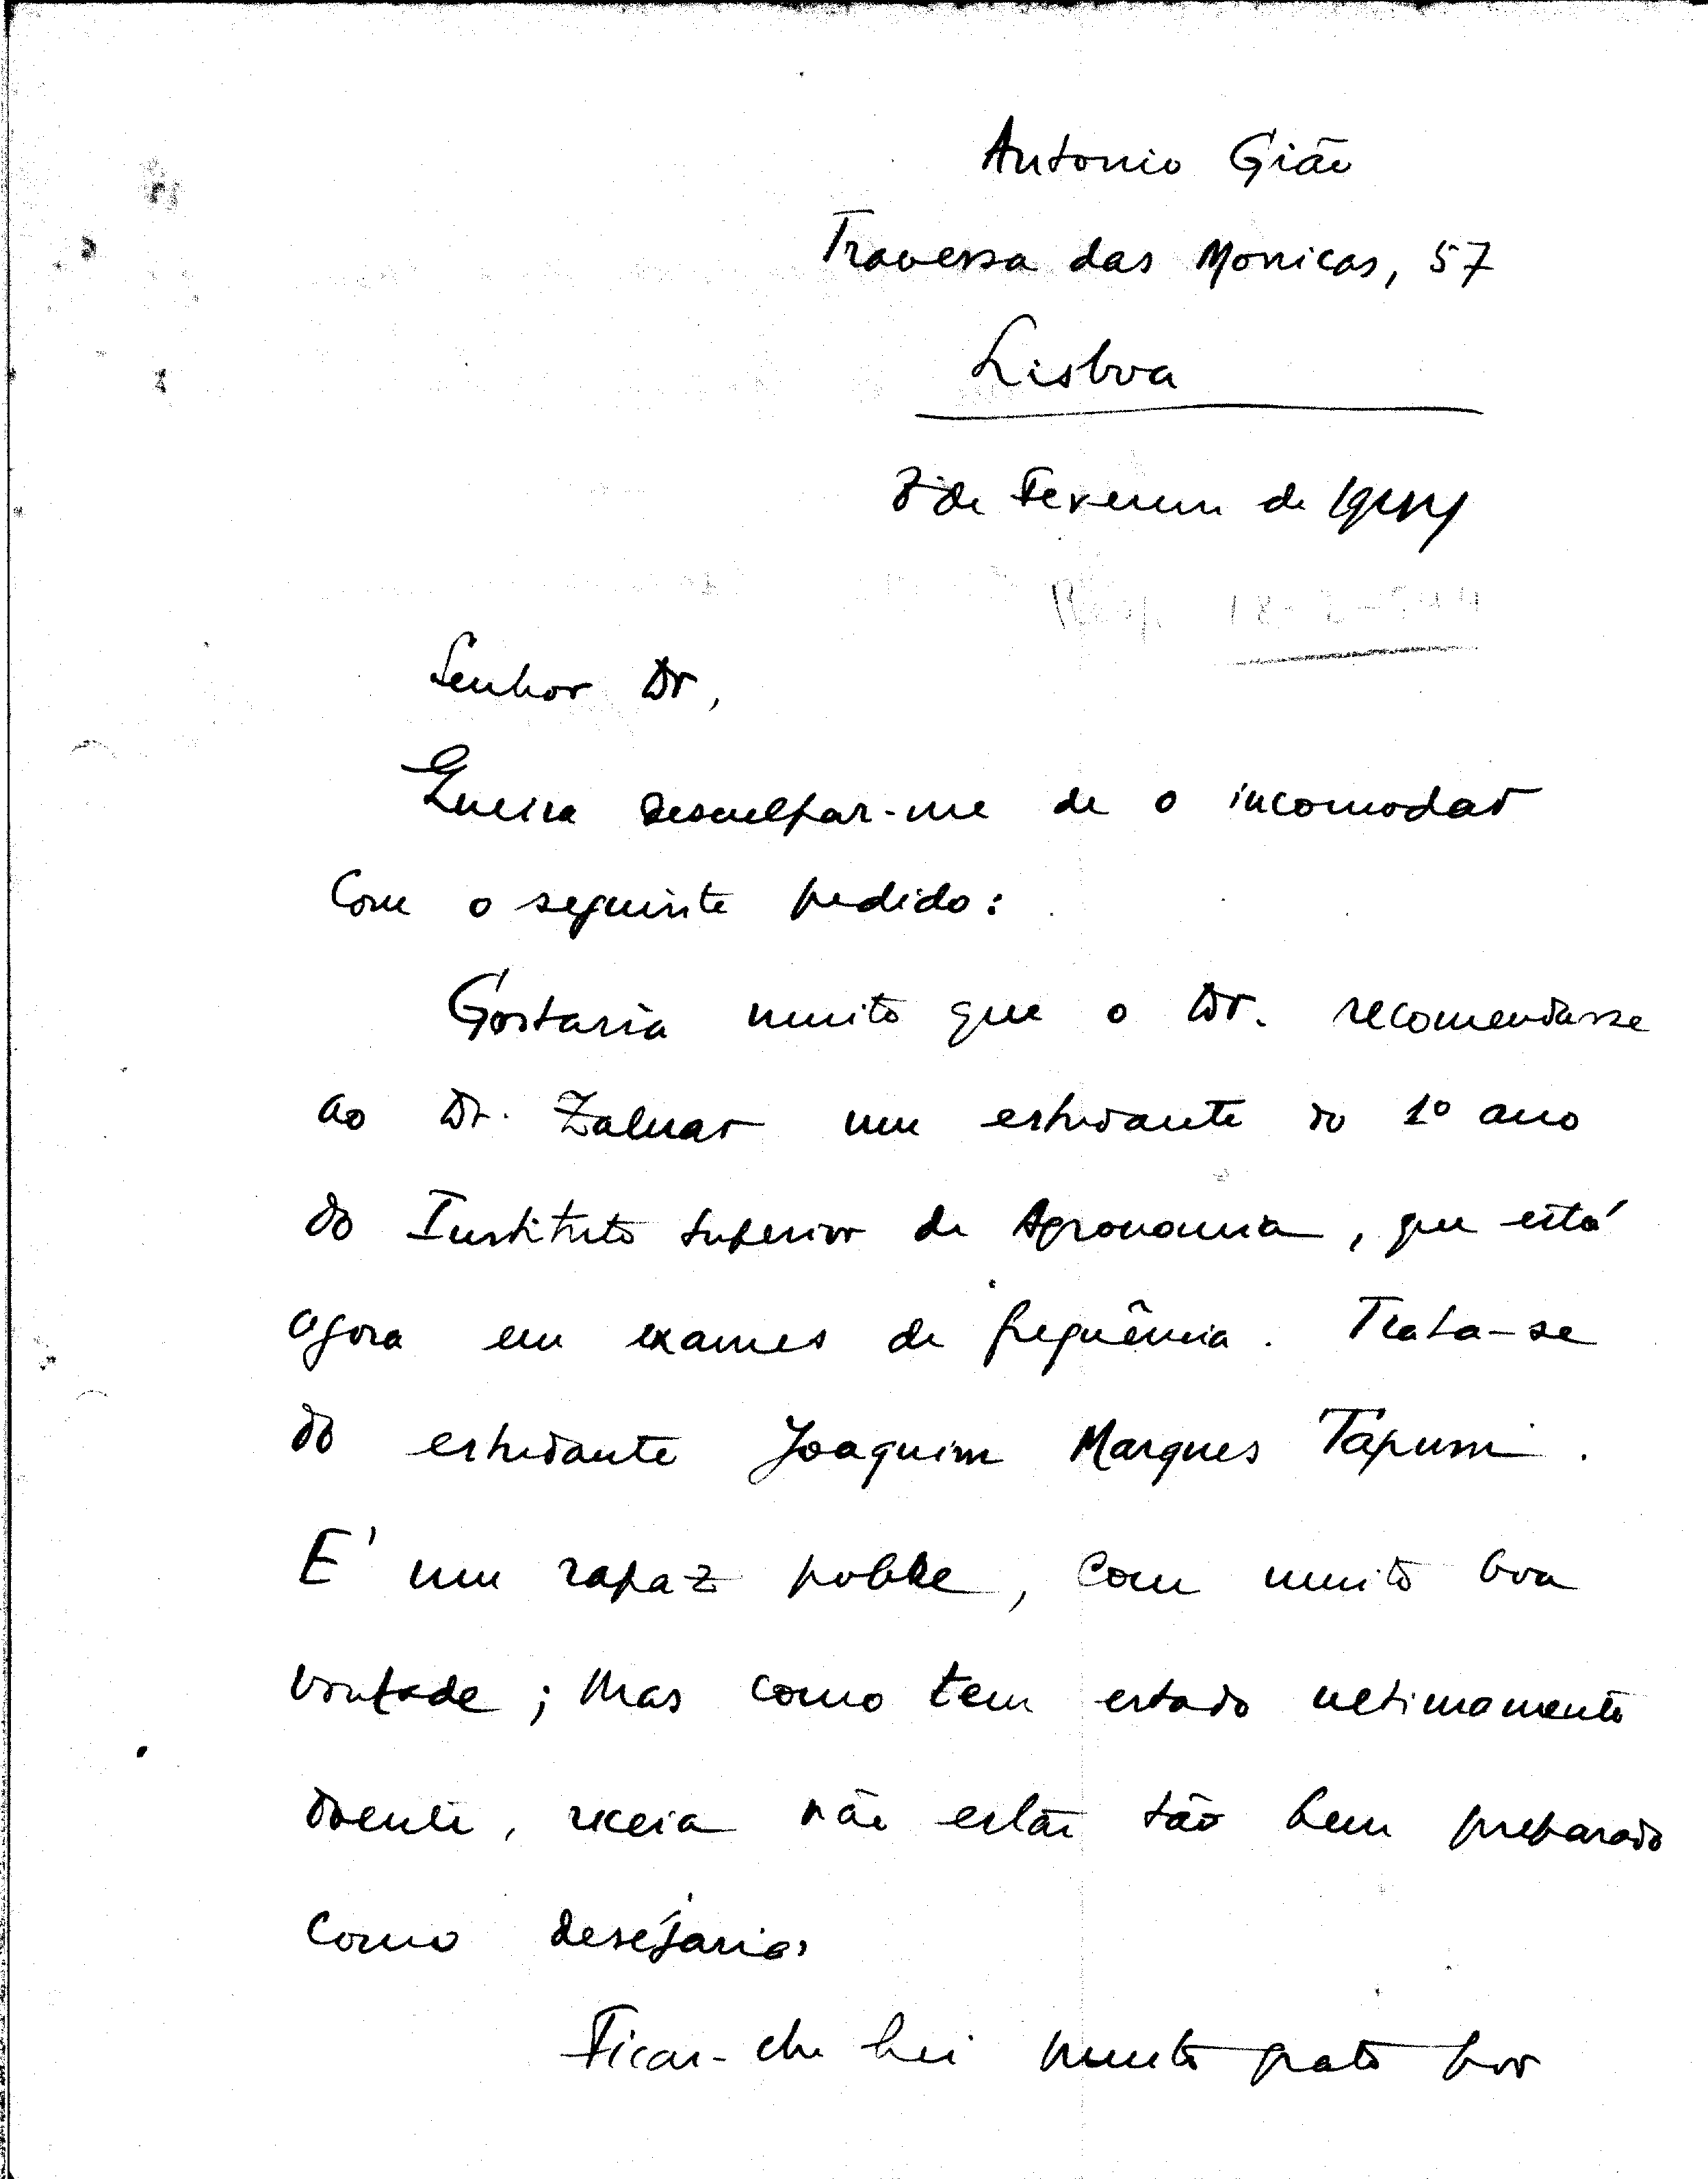 Antonio Gião
Travessa das Monicas, 57
Lisboa
de Fevereiro de 1944
Resp. 18-2-944
Senhor Dr,
Queira desculpar-me de o incomodar
com o seguinte pedido:
Gostaria muito que o Dr. recomendasse
ao Dr. Zaluar um estudante do 1º ano
do Instituto Superior de Agronomia, que está
agora em exames de frequência. Trata-se
do estudante Joaquim Marques
E' um rapaz pobre, com muito boa
vontade; mas como tem estado ultimamente
doente, receia não estar tão bem preparado
como desejaria.
Ficar-lhe hei muito grato por